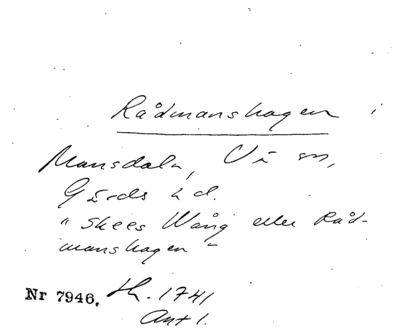 Rådmanshagen
Mansdala, Vä sn,
Gärds hd.
"Skees Wång eller Råd-
manshagen"
Nr 7946. th. 1741
Ant 1.